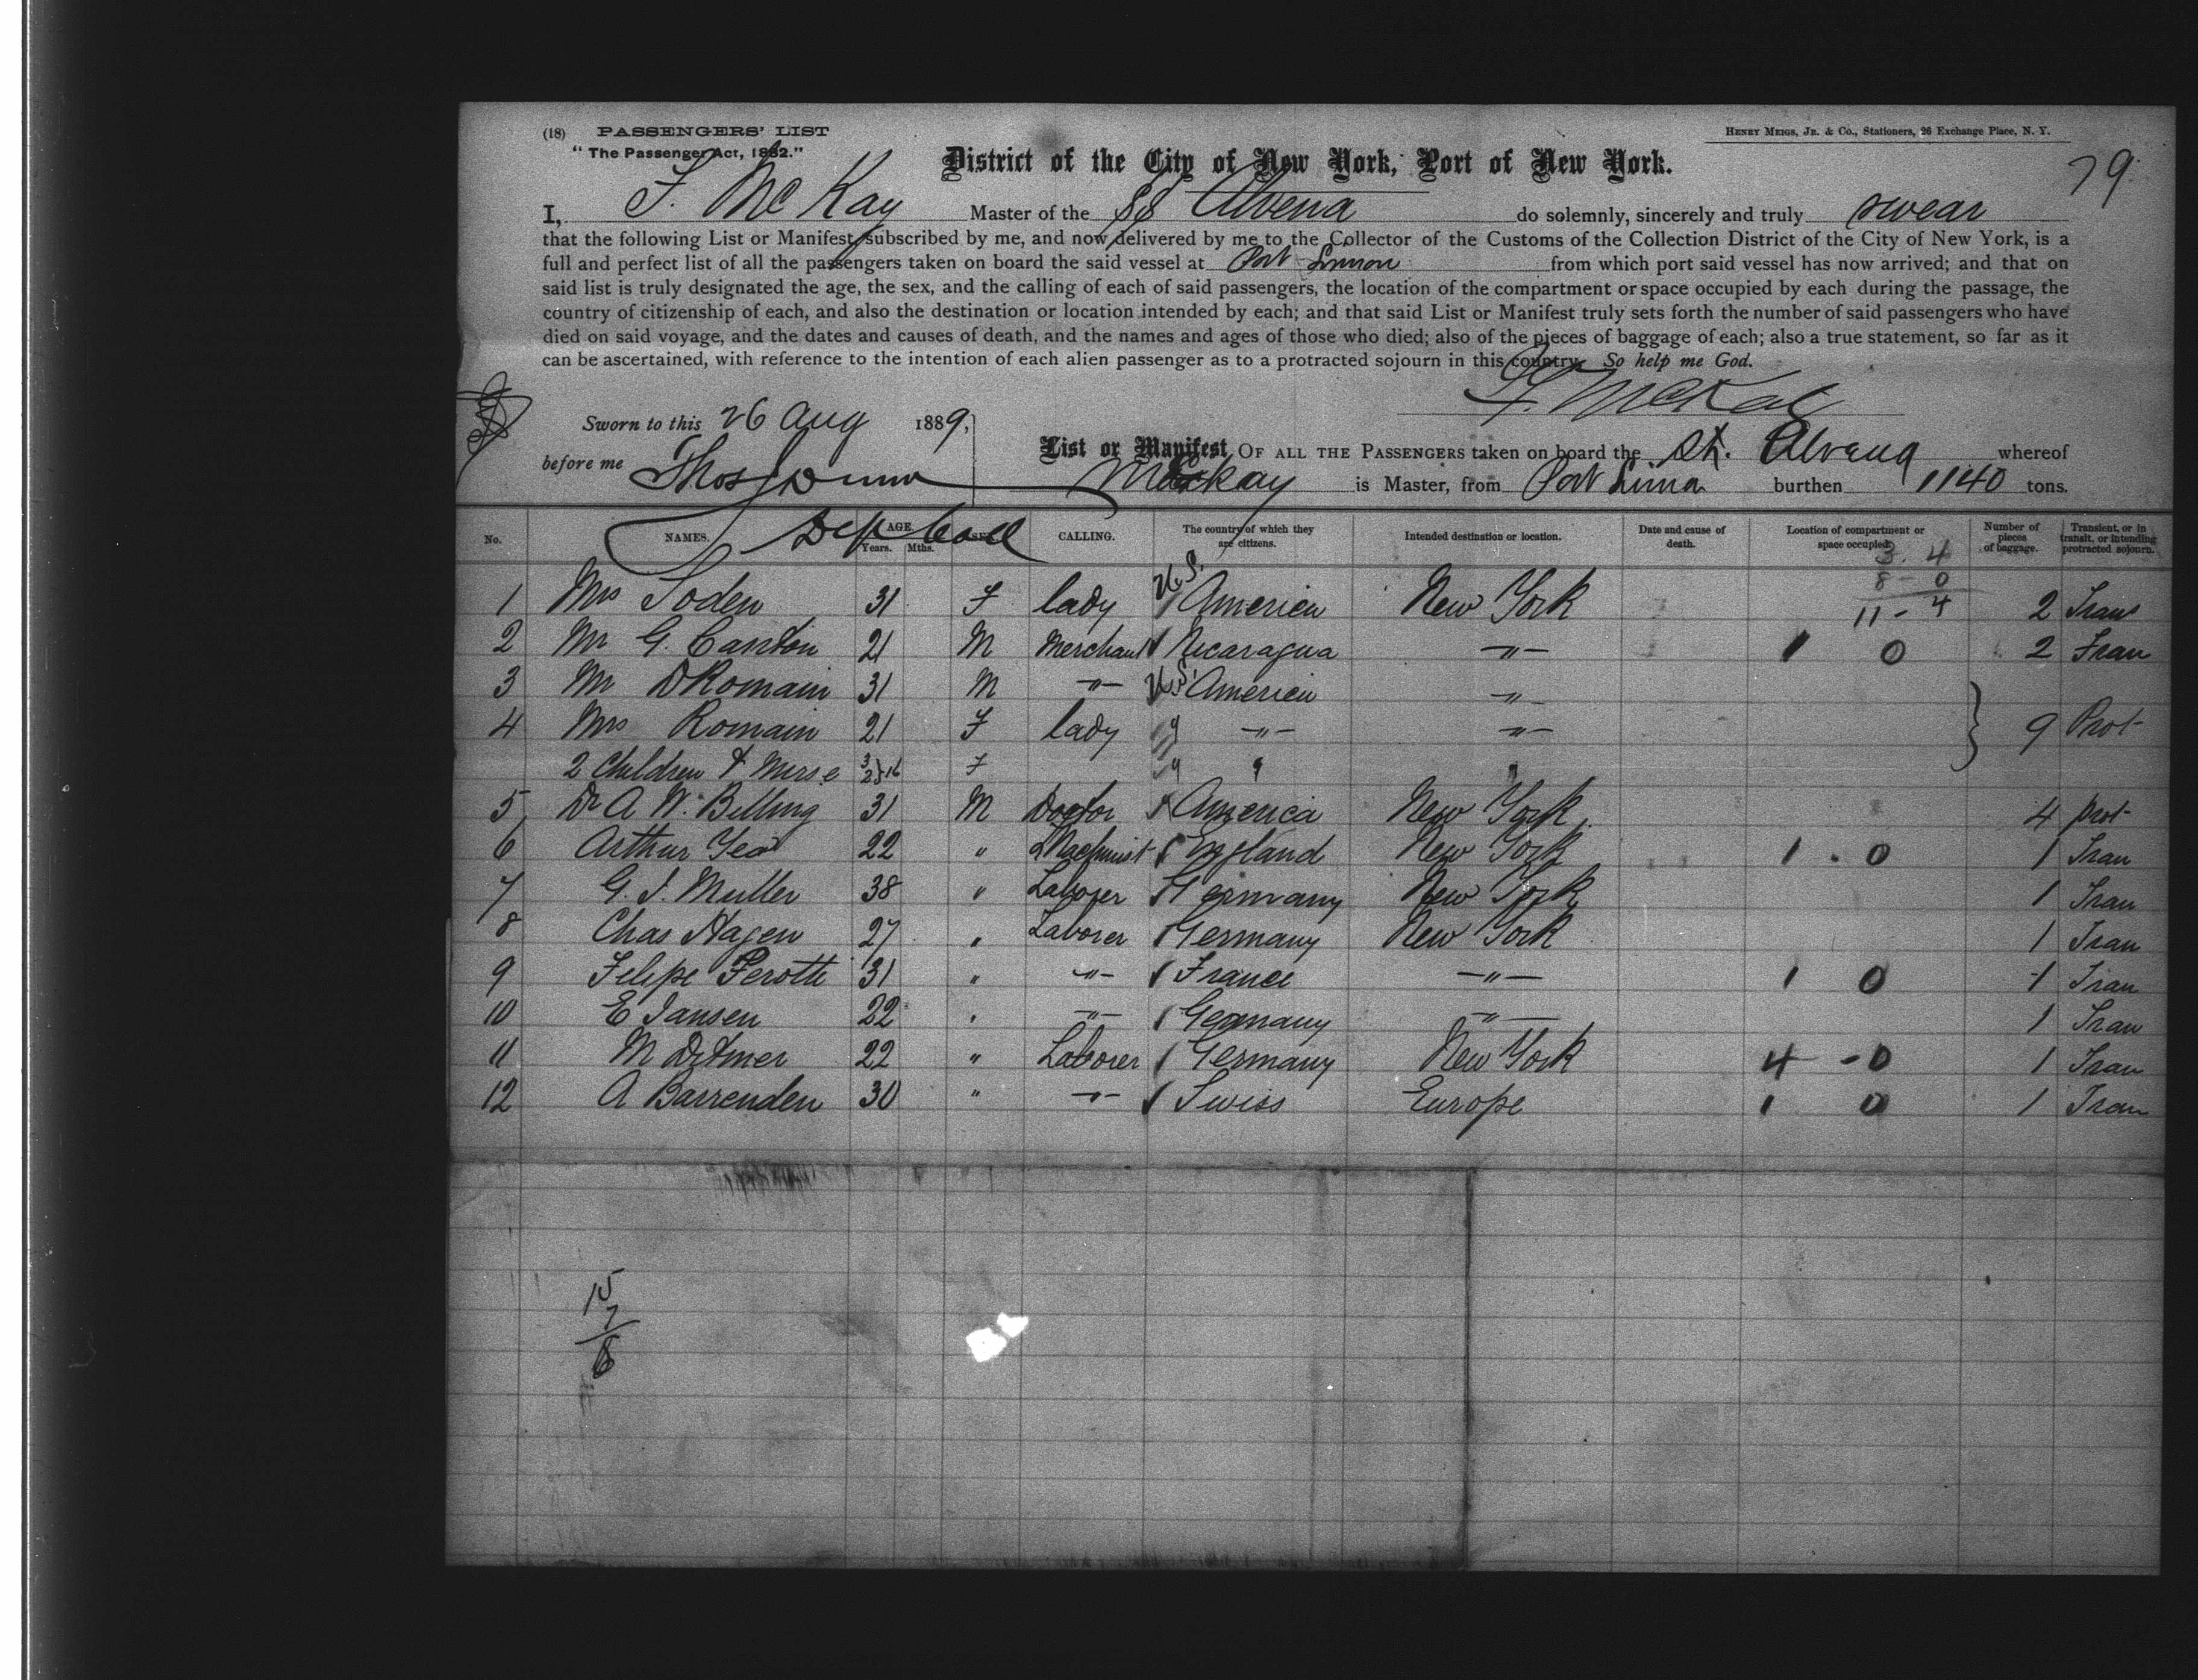 (18) PASSENGERS' LIST
HENRY MEIGS, JR. & CO., Stationers, 26 Exchange Place, N. Y.
" The Passenger Act, 1882."
District of the City of New York, Port of New York.
79
I, F. McKay Master of the SS Alvena do solemnly, sincerely and truly swear
that the following List or Manifest, subscribed by me, and now delivered by me to the Collector of the Customs of the Collection District of the City of New York, is a
full and perfect list of all the passengers taken on board the said vessel at Port Limon from which port said vessel has now arrived; and that on
said list is truly designated the age, the sex, and the calling of each of said passengers, the location of the compartment or space occupied by each during the passage, the
country of citizenship of each, and also the destination or location intended by each; and that said List or Manifest truly sets forth the number of said passengers who have
died on said voyage, and the dates and causes of death, and the names and ages of those who died; also of the pieces of baggage of each; also a true statement, so far as it
can be ascertained, with reference to the intention of each alien passenger as to a protracted sojourn in this country. So help me God.
F. McKay
Sworn to this 26 Aug 1889,
List or Manifest, OF ALL THE PASSENGERS taken on board the St. Alvena whereof
before me Thos J Dunn McKay is Master, from Port Lima burthen 1140 tons.
Dep Coll
No. NAMES. AGE. Years. Mths. SEX. CALLING. The country of which they are citizens. Intended destination or location. Date and cause of death. Location of compartment or space occupied. Number of pieces of baggage. Transient, or in transit, or intending protracted sojourn.
3. 4
8 - 0
11 - 4
1 Mrs Soden 31 F lady U.S. America New York 2 Tran
2 Mr G. Canton 21 M Merchant Nicaragua -"- 1 0 2 Tran
3 Mr D Romain 31 M -"- U.S. America -"-
4 Mrs Romain 21 F lady -"- -"- 9 Prot
2 Children & Nurse F " "
5 Dr A W. Billing 31 M Doctor America New York 4 Prot
6 Arthur Yea 22 " Machinist England New York 1 . 0 1 Tran
7 G. J. Muller 38 " Laborer Germany New York 1 Tran
8 Chas Hagen 27 " Laborer Germany New York 1 Tran
9 Felipe Perotti 31 " -"- France -"- 1 0 1 Tran
10 E Jansen 22 " -"- Germany -"- 1 Tran
11 M Ditmer 22 " Laborer Germany New York 4 - 0 1 Tran
12 A Barrenden 30 " -"- Swiss Europe 1 0 1 Tran
15
7
8